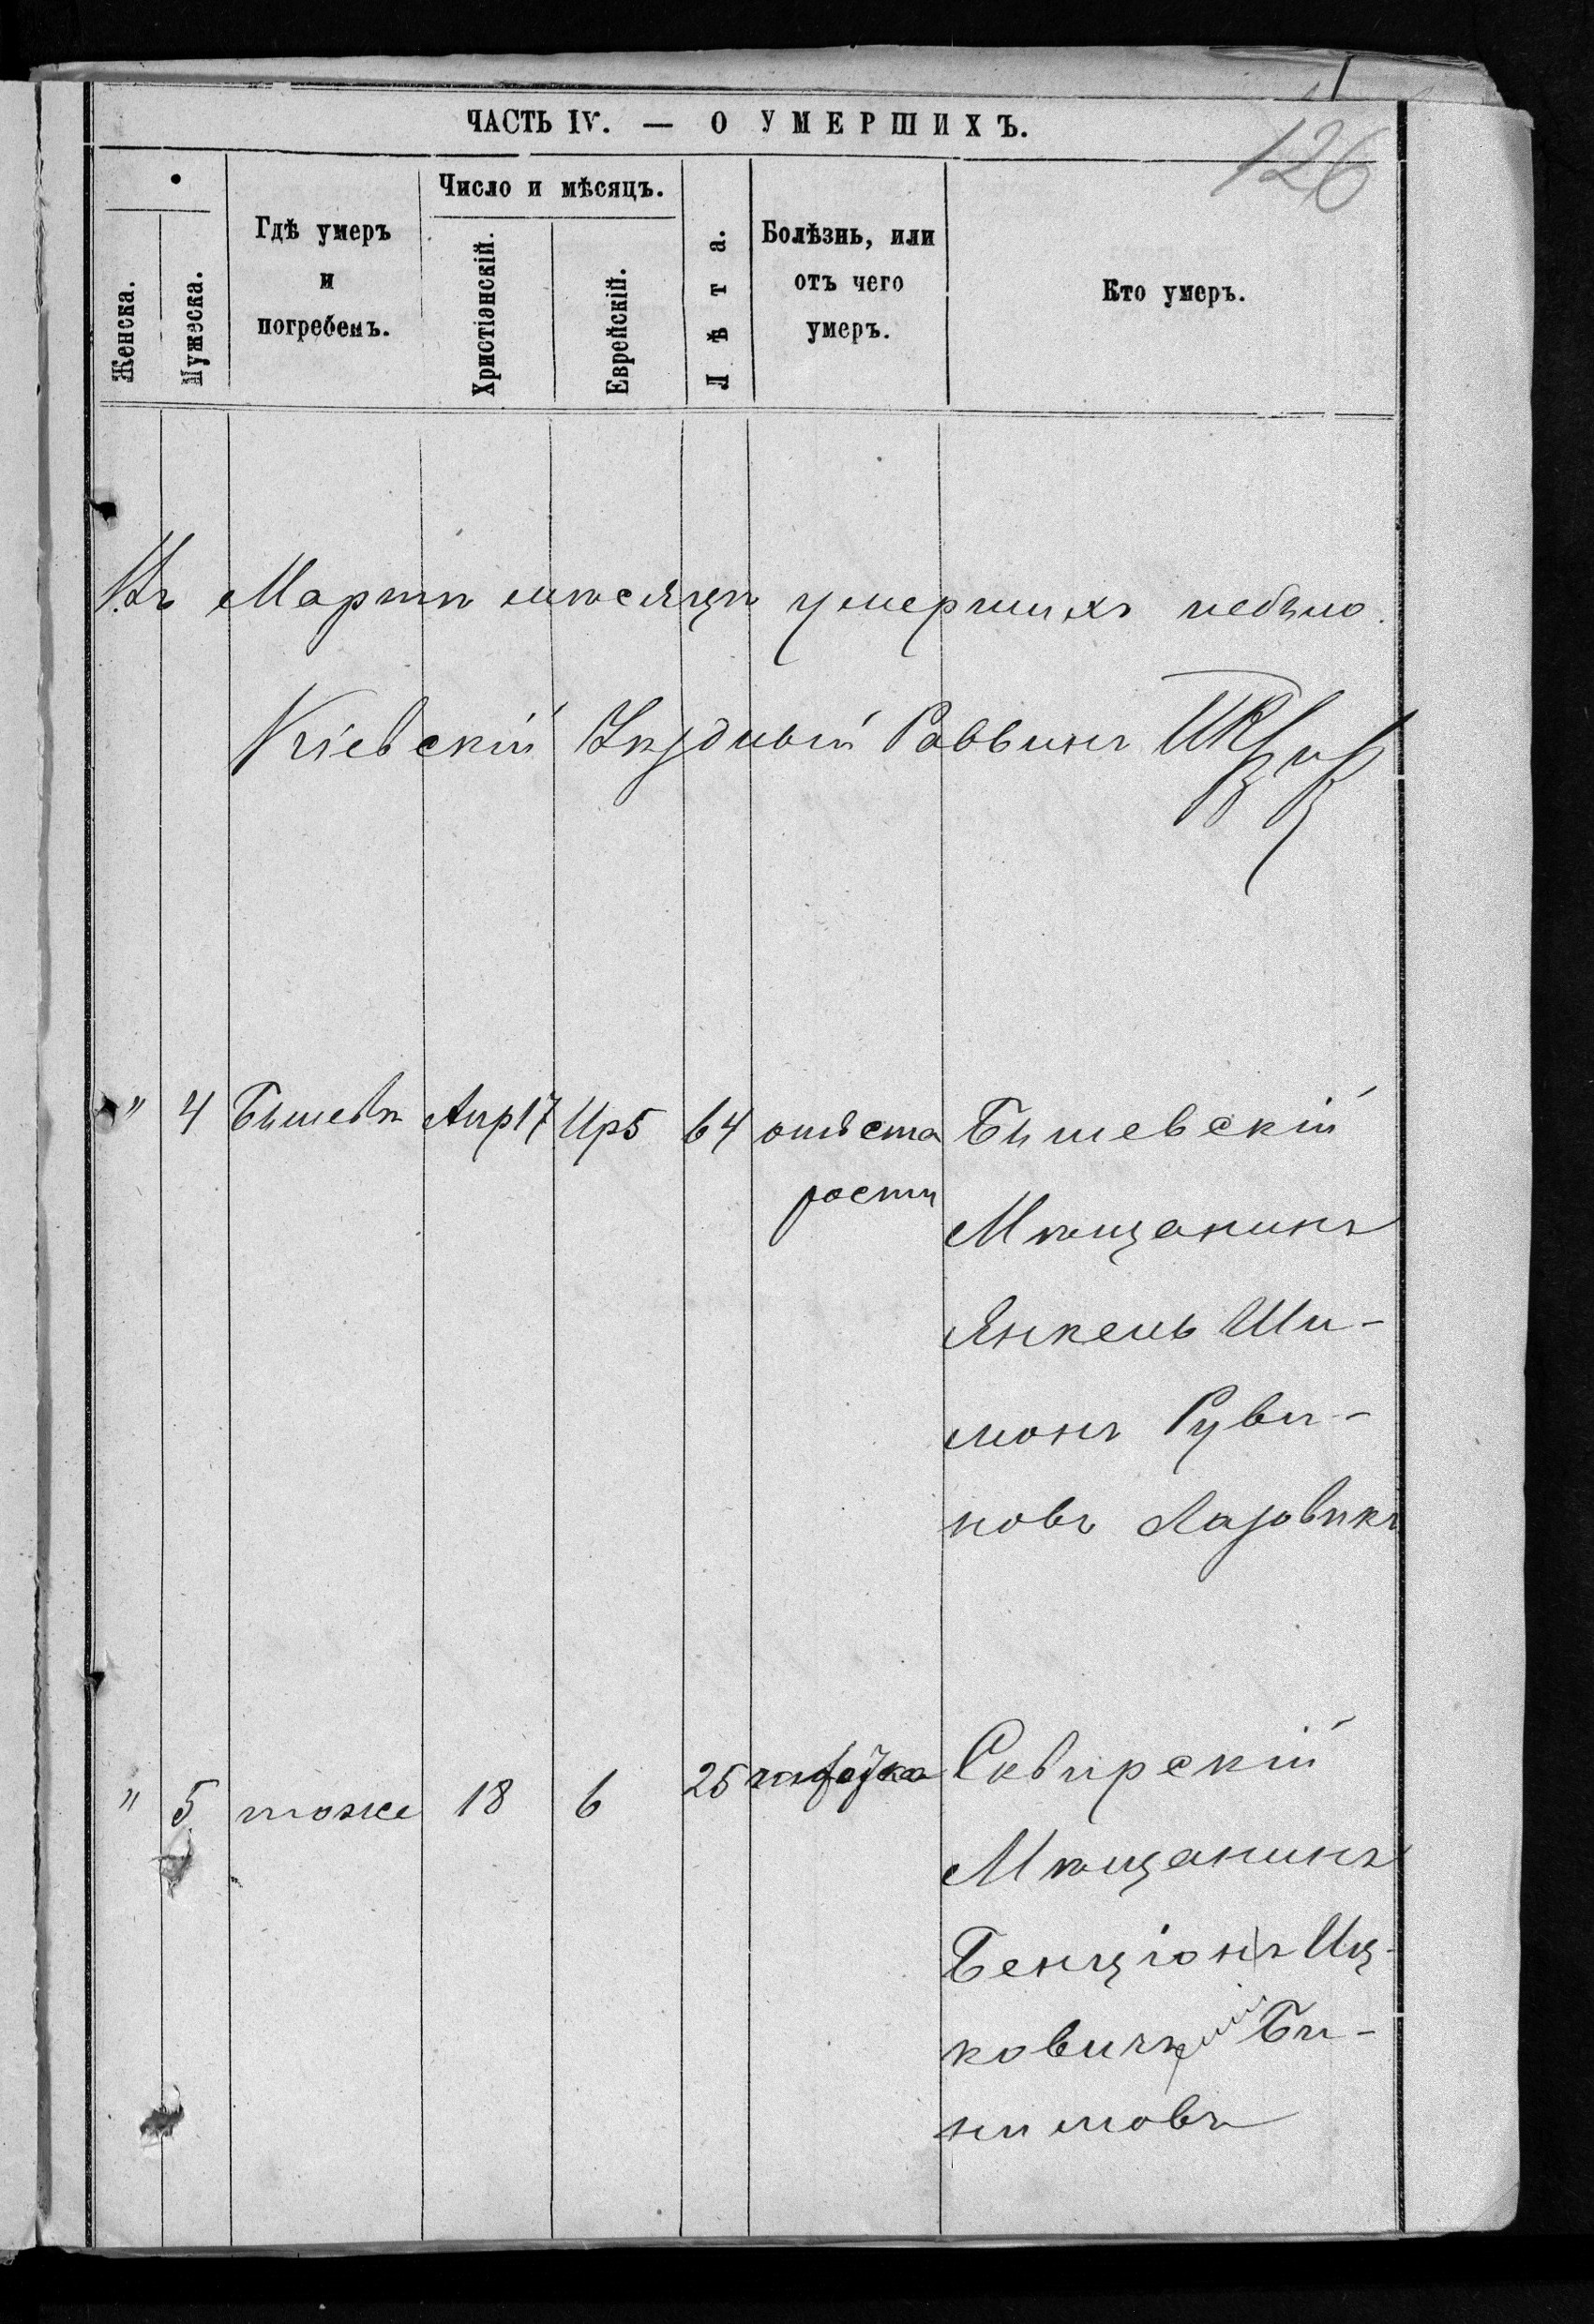 126
ЧАСТЬ IV. — О УМЕРШИХЪ.
Женска.
Мужеска.
Гдѣ умеръ
и
погребенъ.
Число и мѣсяцъ.
Христіанскій.
Еврейскій.
Лѣта.
Болѣзнь, или
отъ чего
умеръ.
Кто умеръ.
Въ Мартѣ мѣсяцѣ умершихъ небыло.
Кіевскій Уѣздный Раввинъ
" 4 Бышевѣ Апр 17 Ир 5 64 отъ ста
рости
Бышевскій
Мѣщанинъ
Янкель Ши-
монъ Руви-
новъ Лазовикъ
" 5 тоже 18 6 25 чахотка
Сквирскій
Мѣщанинъ
Бенціонъ Иц-
ковичъ Би-
нимовъ